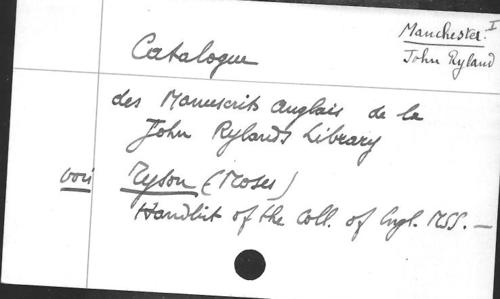 Manchester. I
John Ryland
Catalogue
des Manuscrits anglais de la
John Rylands Library
voir Tyson (Moses)
Handlist of the Coll. of Engl. MSS. —